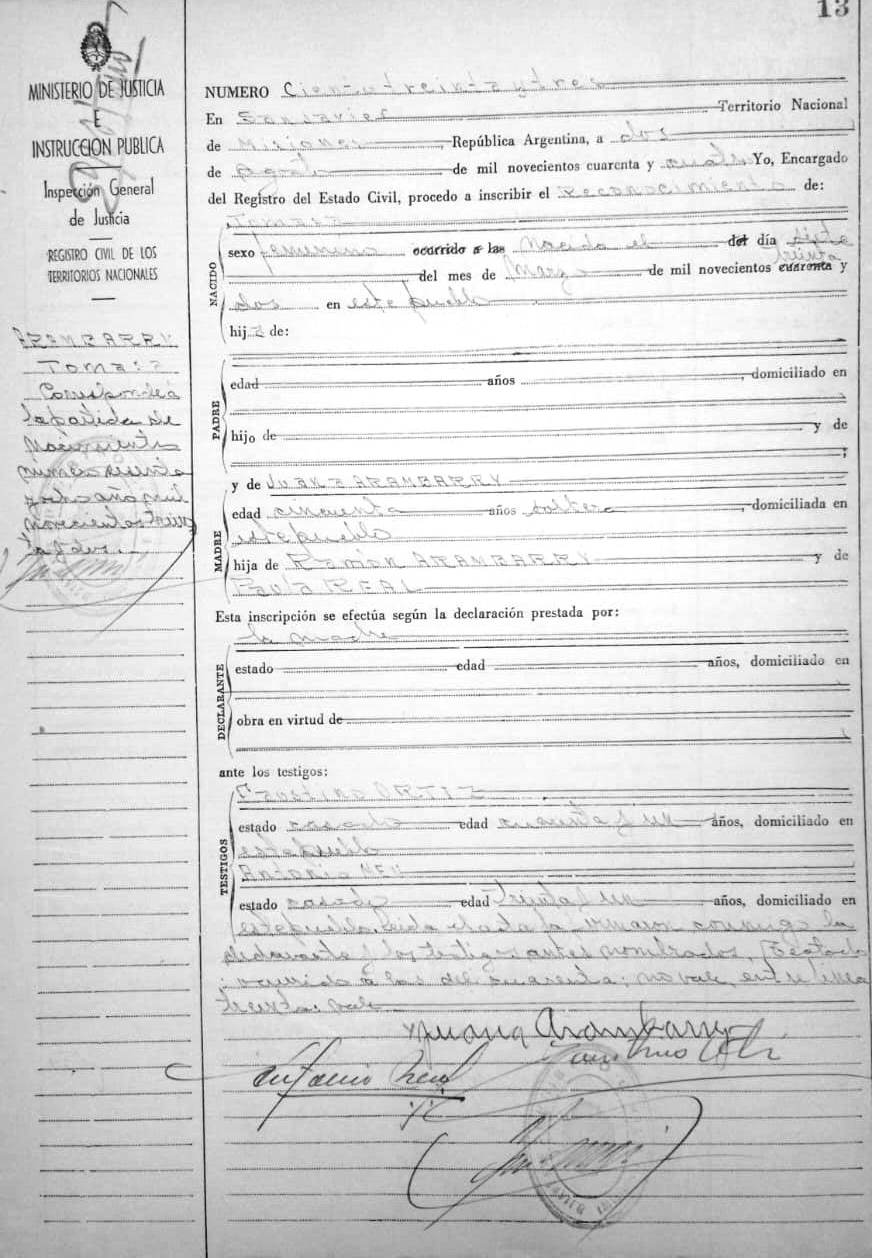 13
MINISTERIO DE JUSTICIA
E
INSTRUCCION PUBLICA
Inspección General
de Justicia
REGISTRO CIVIL DE LOS
TERRITORIOS NACIONALES
ARAMBARRY
Tomasa
Corresponde á
la partida de
Nacimiento
numero sesenta
y ocho año mil
novecientos trein
ta y dos.
NUMERO Ciento treinta y tres
En San Javier Territorio Nacional
de Misiones, República Argentina, a dos
de Agosto de mil novecientos cuarenta y cuatro Yo, Encargado
del Registro del Estado Civil, procedo a inscribir el Reconocimiento de:
Tomasa
NACIDO
sexo femenino ocurrido a las Nacida el del día siete
treinta
del mes de Marzo de mil novecientos cuarenta y
dos en este pueblo
hija de:
PADRE
edad años, domiciliado en
hijo de y de
;
MADRE
y de Juana ARAMBARRY
edad cincuenta años soltera, domiciliada en
este pueblo
hija de Ramón ARAMBARRY y de
Paula REAL
Esta inscripción se efectúa según la declaración prestada por:
la madre
DECLARANTE
estado edad años, domiciliado en
obra en virtud de
ante los testigos:
TESTIGOS
Faustino ORTIZ
estado casado edad cuarenta y un años, domiciliado en
este pueblo
Antonio NEU
estado casado edad treinta y un años, domiciliado en
este pueblo. Leida el acta la firmaron conmigo la
declarante y los testigos antes nombrados. Testado
ocurrido a las del cuarenta: no vale, entre linea
treinta: vale
Juana Arambarry